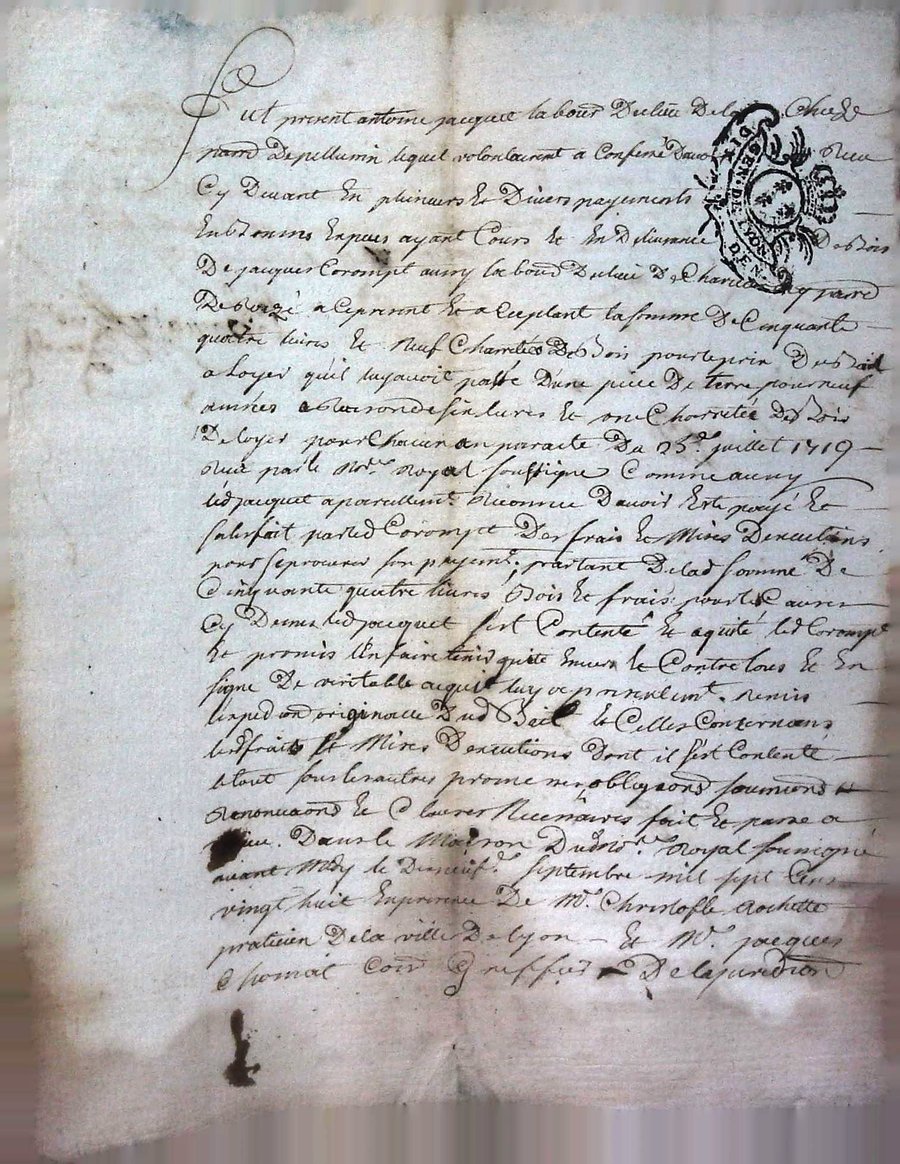 Fut present antoine jacquet laboure Du lieu De la Chieze
parr&lt;e&gt; De pellussin lequel volontairemt a Confessé Davoir Receu
Cy Devant En plusieurs Et Divers payements
En bonnes Especes ayant Cours Et En Delivrance De Bois
De jacques Corompt aussy laboure Du lieu De parre
De Voizé a Ce present Et acceptant la somme De Cinquante
quatre livres Et neuf Charretés De Bois pour le prix Du Bail
a Loyer qu'il luy avoit passé D'une piece De terre pour neuf
années a Raison de six livres Et une Charretée De Bois
De loyer pour Chacun an par acte Du 25e juillet 1719
Receu par le Nore Royal soussigné Comme aussy
led jacquet a pareillemt Reconnu Davoir Esté payé Et
satisfait par led Corompt Des frais Et Mises Dexecutions
pour se procurer son payemt, partant De lad somme De
Cinquante quatre livres Bois Et frais pour les Causes
Cy Dessus led jacquet s'est Contenté Et aquité led Corompt
Et promis l'En faire tenir quite Envers Et Contre tous Et En
signe De veritable acquit luy a presentemt Remis
lexpedon originalle Dud Bail Et Celles Concernans
lesd frais Et Mises Dexecutions Dont il s'est Contenté
le tout sous les autres promesses obligaons soumions Et
Renonciaons Et Clauses Necessaires fait Et passé a
Dans la Maison Dud Nore Royal soussigné
avant Midy le Dixneufe Septembre mil sept Cens
vingt huit En presence De Mre Christofle Rochette
praticien De la ville De lyon Et Mre jacques
Chomat Comis Greffier De la juridion
GEN. DE LYON